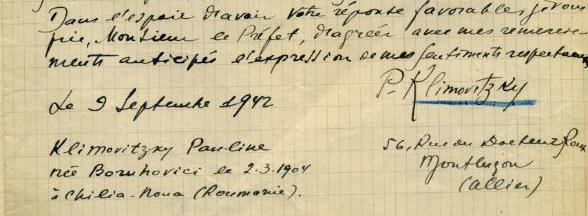 Dans l'espoir d'avoir votre réponse favorable, je vous
prie, Monsieur le Préfet, d'agréer avec mes remercie-
ments anticipés l'expression de mes sentiments respectueux
P. Klimovitzky
Le 9 Septembre 1942
Klimovitzky Pauline
née Bornhovici le 2-3-1904
à Chilia-Noua (Roumanie).
56, Rue du Docteur Roux
Montluçon
(Allier)